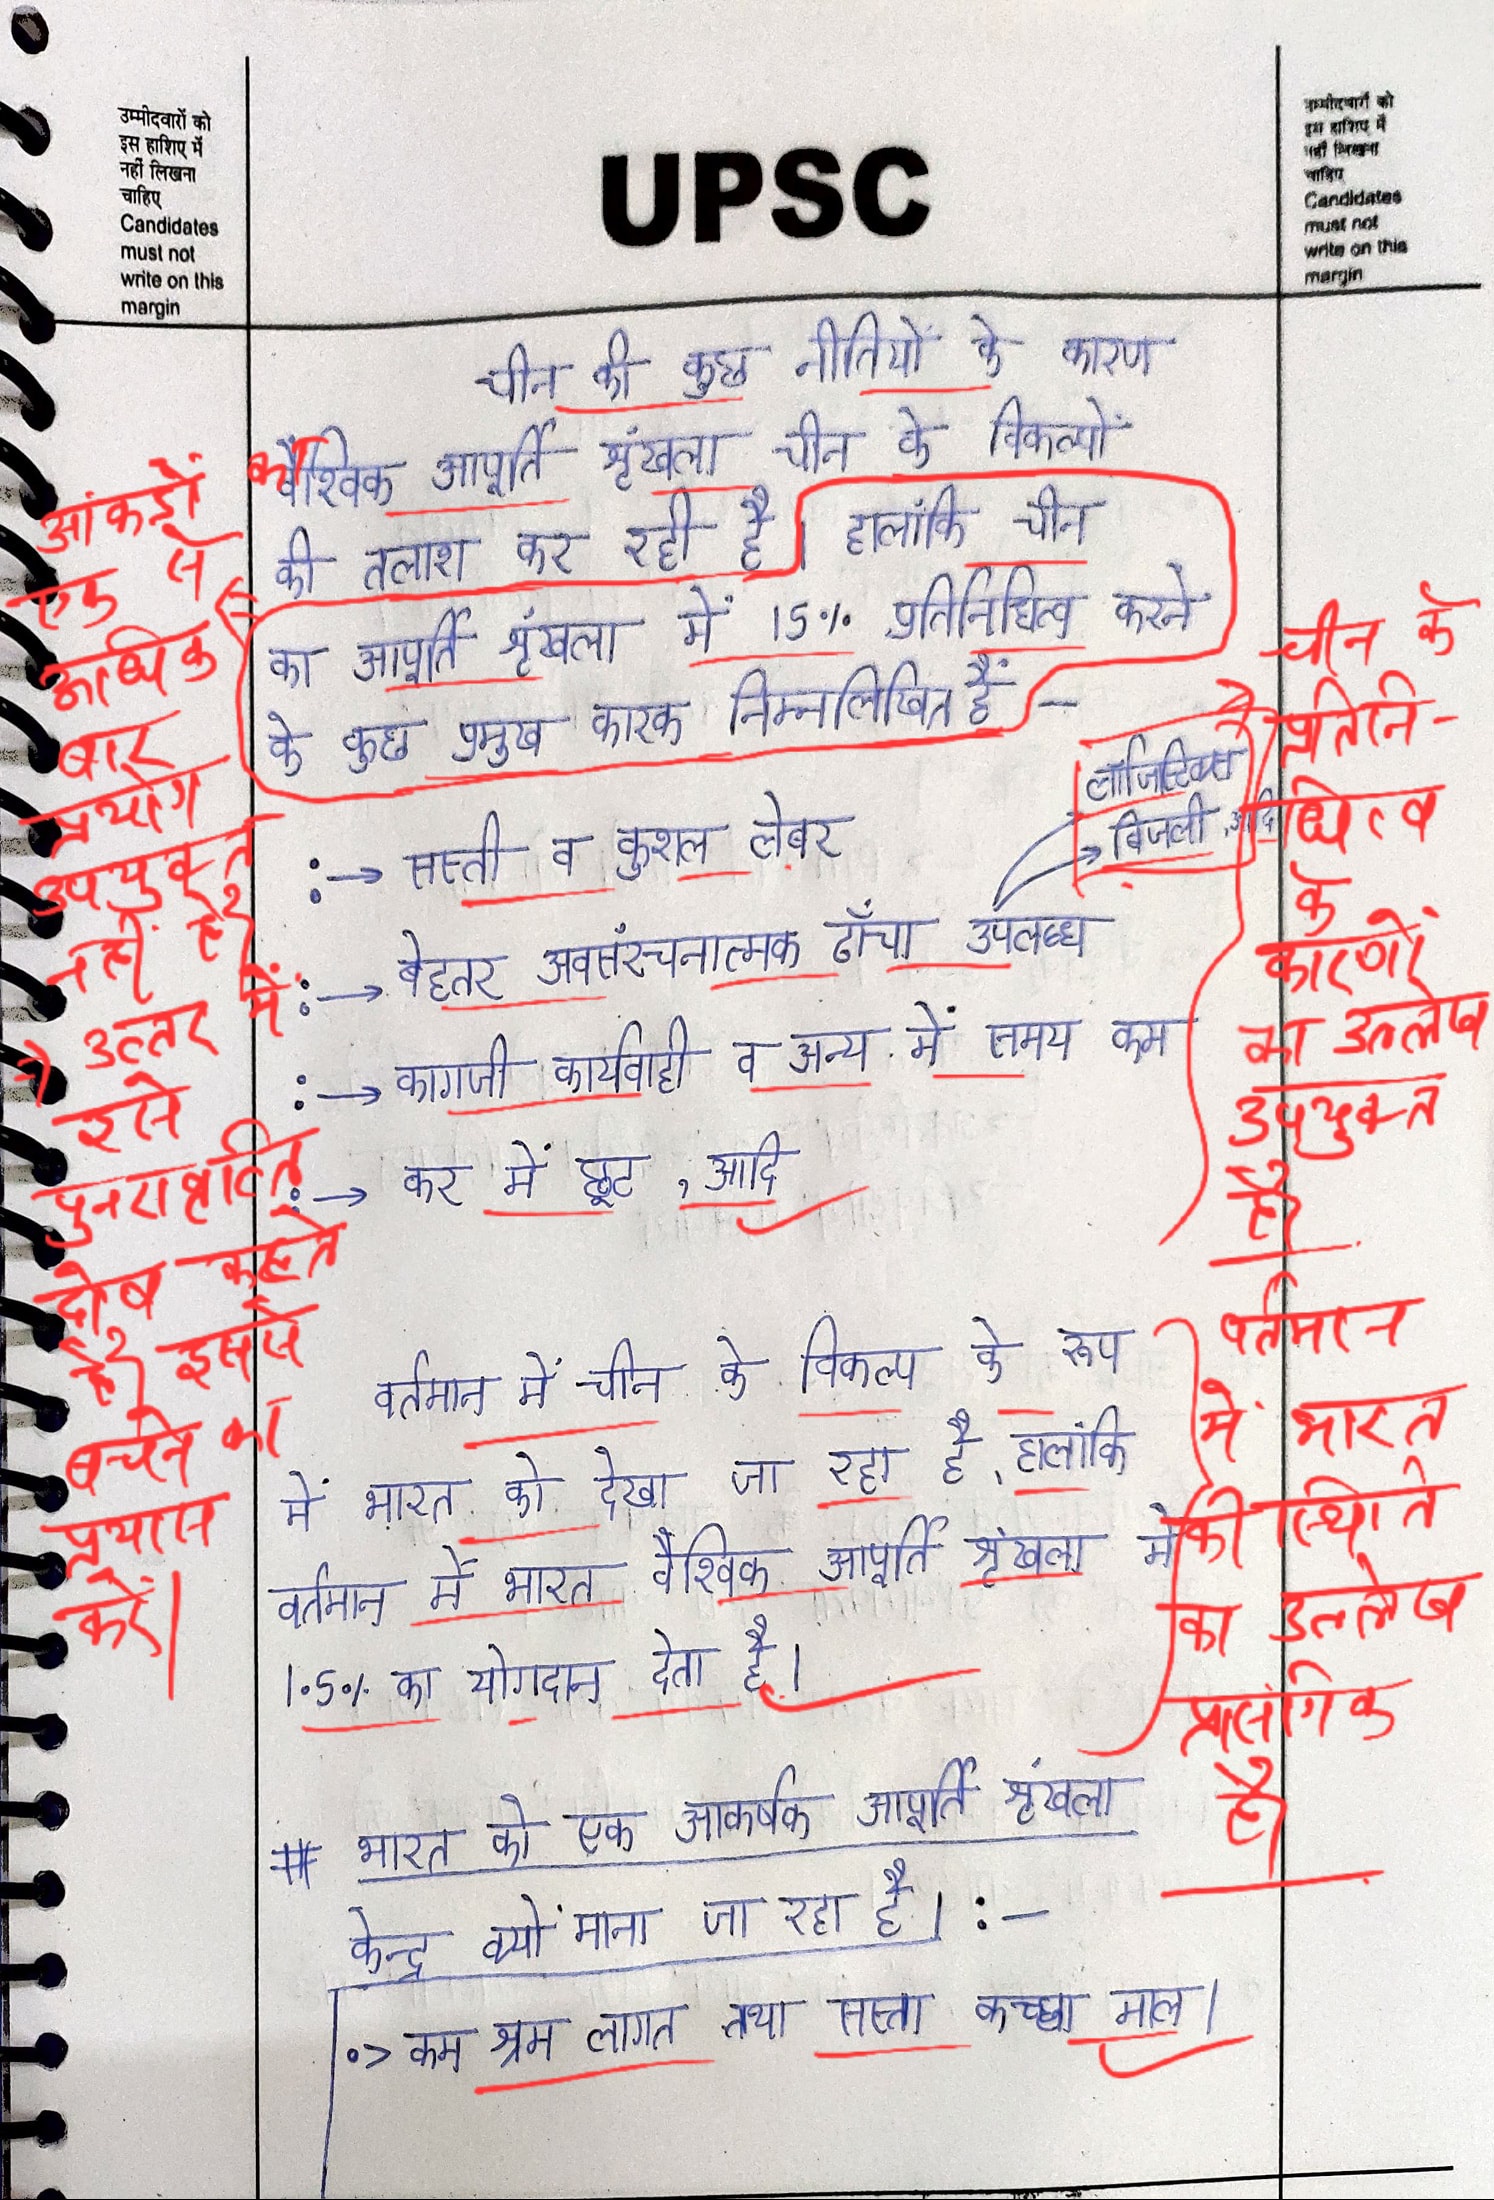 उम्मीदवारों को
इस हाशिए में
नहीं लिखना
चाहिए
Candidates
must not
write on this
margin
UPSC
उम्मीदवारों को
इस हाशिए में
नहीं लिखना
चाहिए
Candidates
must not
write on this
margin
चीन की कुछ नीतियों के कारण
वैश्विक आपूर्ति श्रृंखला चीन के विकल्पों
की तलाश कर रही है। हालांकि चीन
का आपूर्ति श्रृंखला में 15% प्रतिनिधित्व करने
के कुछ प्रमुख कारक निम्नलिखित हैं -
लॉजिस्टिक्स
बिजली, आदि
:→ सस्ती व कुशल लेबर
:→ बेहतर अवसंरचनात्मक ढाँचा उपलब्ध
:→ कागजी कार्यवाही व अन्य में समय कम
:→ कर में छूट, आदि
वर्तमान में चीन के विकल्प के रूप
में भारत को देखा जा रहा है, हालांकि
वर्तमान में भारत वैश्विक आपूर्ति श्रृंखला में
1.5% का योगदान देता है।
# भारत को एक आकर्षक आपूर्ति श्रृंखला
केन्द्र क्यों माना जा रहा है। :-
•> कम श्रम लागत तथा सस्ता कच्चा माल।
आंकड़ों का
एक से
अधिक
बार
प्रयोग
उपयुक्त
नहीं है
→ उत्तर में
इसे
पुनरावृत्ति
दोष कहते
है इससे
बचने का
प्रयास
करें।
चीन के
प्रतिनि-
धित्व
के
कारणों
का उल्लेख
उपयुक्त
है।
वर्तमान
में भारत
की स्थिति
का उल्लेख
प्रासंगिक
है।